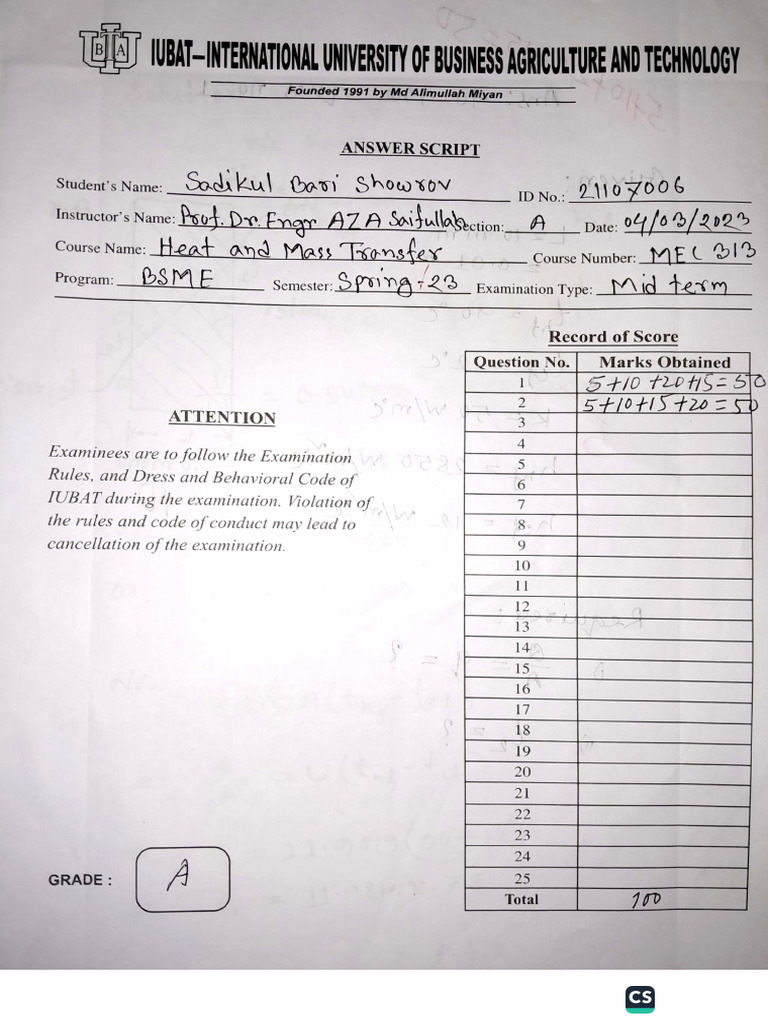 IUBAT
IUBAT–INTERNATIONAL UNIVERSITY OF BUSINESS AGRICULTURE AND TECHNOLOGY
Founded 1991 by Md Alimullah Miyan
ANSWER SCRIPT
Student's Name: Sadikul Bari Showrov ID No.: 21107006
Instructor's Name: Prof. Dr. Engr AZA Saifullah Section: A Date: 04/03/2023
Course Name: Heat and Mass Transfer Course Number: MEC 313
Program: BSME Semester: Spring-23 Examination Type: Mid term
Record of Score
Question No. Marks Obtained
1 5+10+20+15=50
2 5+10+15+20=50
3
4
5
6
7
8
9
10
11
12
13
14
15
16
17
18
19
20
21
22
23
24
25
Total 100
ATTENTION
Examinees are to follow the Examination
Rules, and Dress and Behavioral Code of
IUBAT during the examination. Violation of
the rules and code of conduct may lead to
cancellation of the examination.
GRADE : A
CS